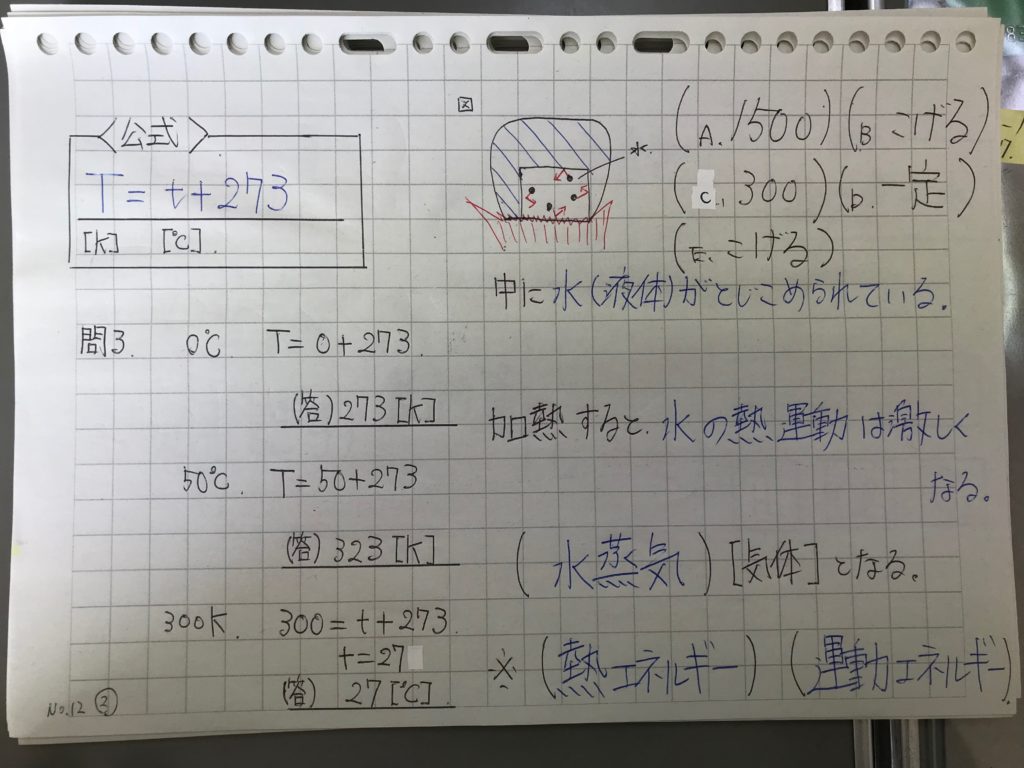 〈公式〉
T = t+273
[K] [℃].
問3. 0℃ T=0+273.
(答)273[K]
50℃. T=50+273
(答)323[K]
300K. 300=t+273.
t=27
(答) 27[℃].
No.12 ②
図
水.
(A. 1500)(B こげる)
(C., 300)(D. 一定)
(E. こげる)
中に水(液体)がとじこめられている。
加熱すると、水の熱運動は激しく
なる。
(水蒸気)[気体]となる。
※(熱エネルギー)(運動エネルギー)